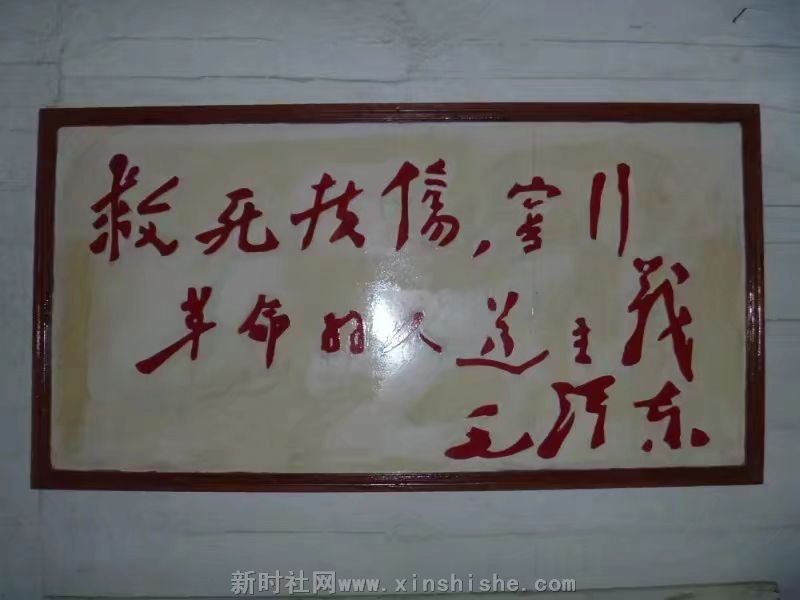 救死扶傷，實行
革命的人道主義
毛泽东
新时社网www.xinshishe.com